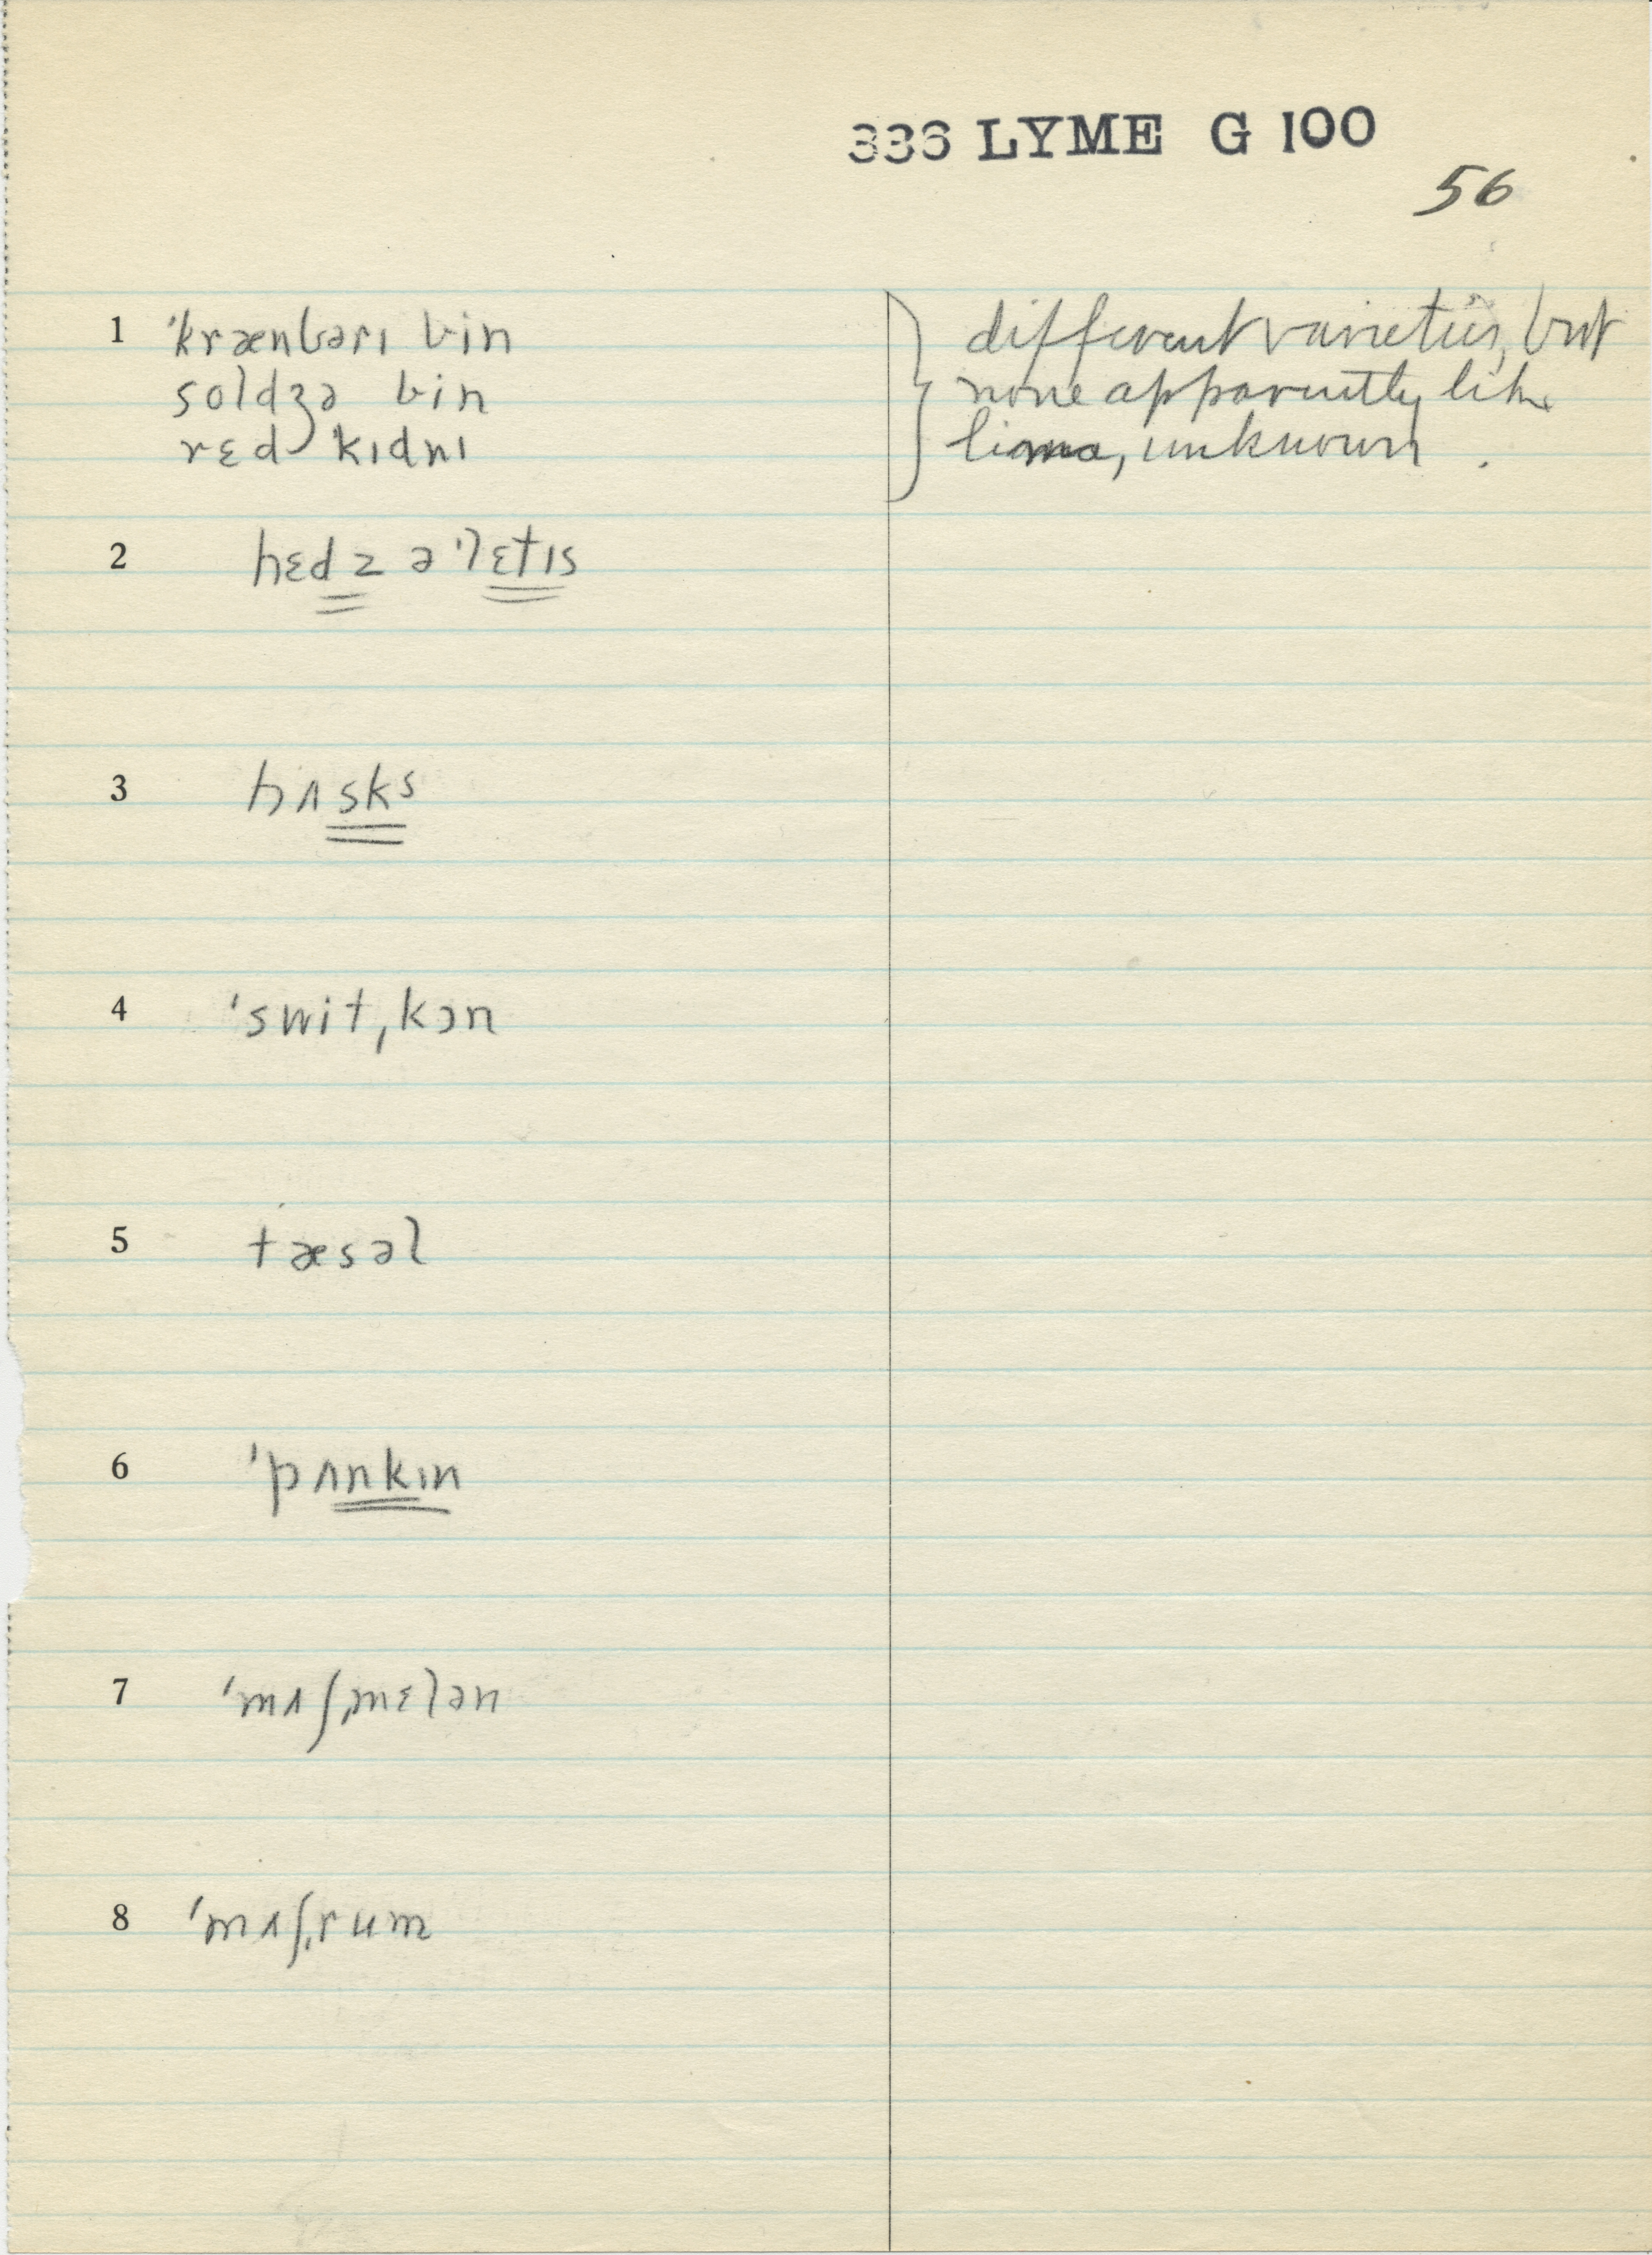 336 LYME G 100
56
1 ˈkrænbərɪ bin
soldʒə bin
rɛd kɪdnɪ
different varieties, but
none apparently like
lima, unknown.
2 hɛdz ə ˈlɛtɪs
3 hʌsks
4 ˈswitˌkɔn
5 tæsəl
6 ˈpʌnkɪn
7 ˈmʌʃˌmɛlən
8 ˈmʌʃˌrum